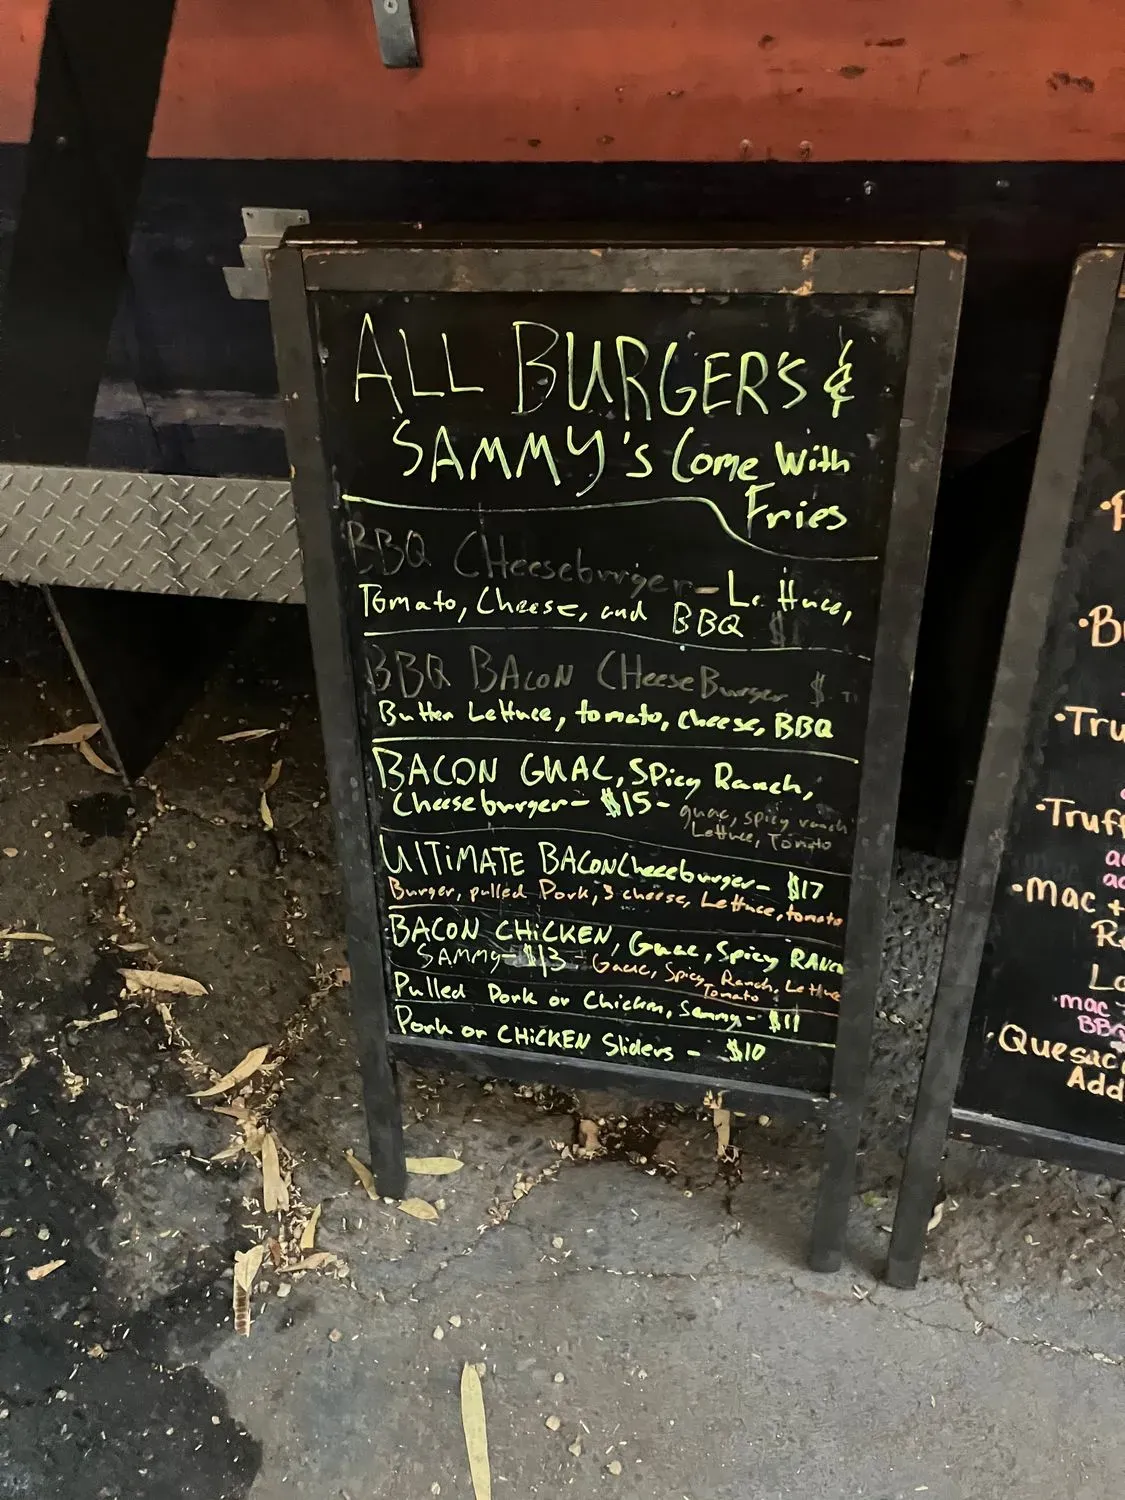 ALL BURGER'S &
SAMMY's Come With
Fries
BBQ CHeeseburger - Lettuce,
Tomato, Cheese, and BBQ
BBQ BACON CHeeseBurger $
Butter Lettuce, tomato, cheese, BBQ
BACON GUAC, SPicy Ranch,
Cheeseburger - $15 -
guac, spicy ranch
Lettuce, Tomato
ULTiMATE BACONCheeseburger - $17
Burger, pulled Pork, 3 cheese, Lettuce, tomato
BACON CHiCKEN, Guac, Spicy RANCH
SAMMy - $13 - Guac, Spicy, Ranch, Lettuce
Tomato
Pulled Pork or Chicken, Sammy - $11
Pork or CHiCKEN Sliders - $10
•B
•Tru
•Truff
•Mac +
mac
BBQ
•Quesa
Add